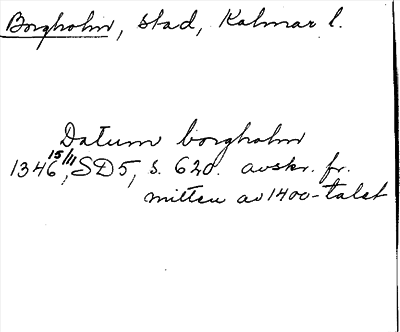 Borgholm, stad, Kalmar l.
Datum borgholm
1346 15/11, SD5, s. 620. avskr. fr.
mitten av 1400-talet